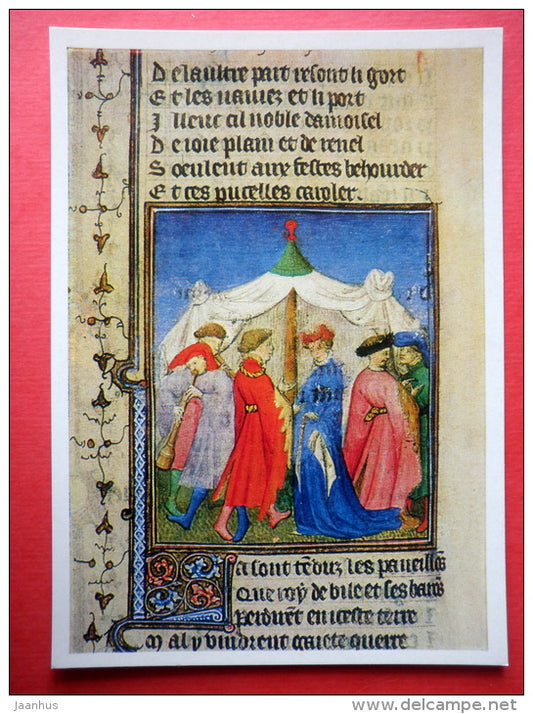 De laultre part resont li gort
Et les naviez et li port
Illeuc cil noble damoisel
De ioie plain et de revel
Soeulent aux festes behourder
Et ces pucelles caroler.
Ja sont tēduz les paveillōs
Que roy de bile et ses barōs
perdirēt en iceste terre
Mal y vindrent
jaanhus
www.delcampe.net